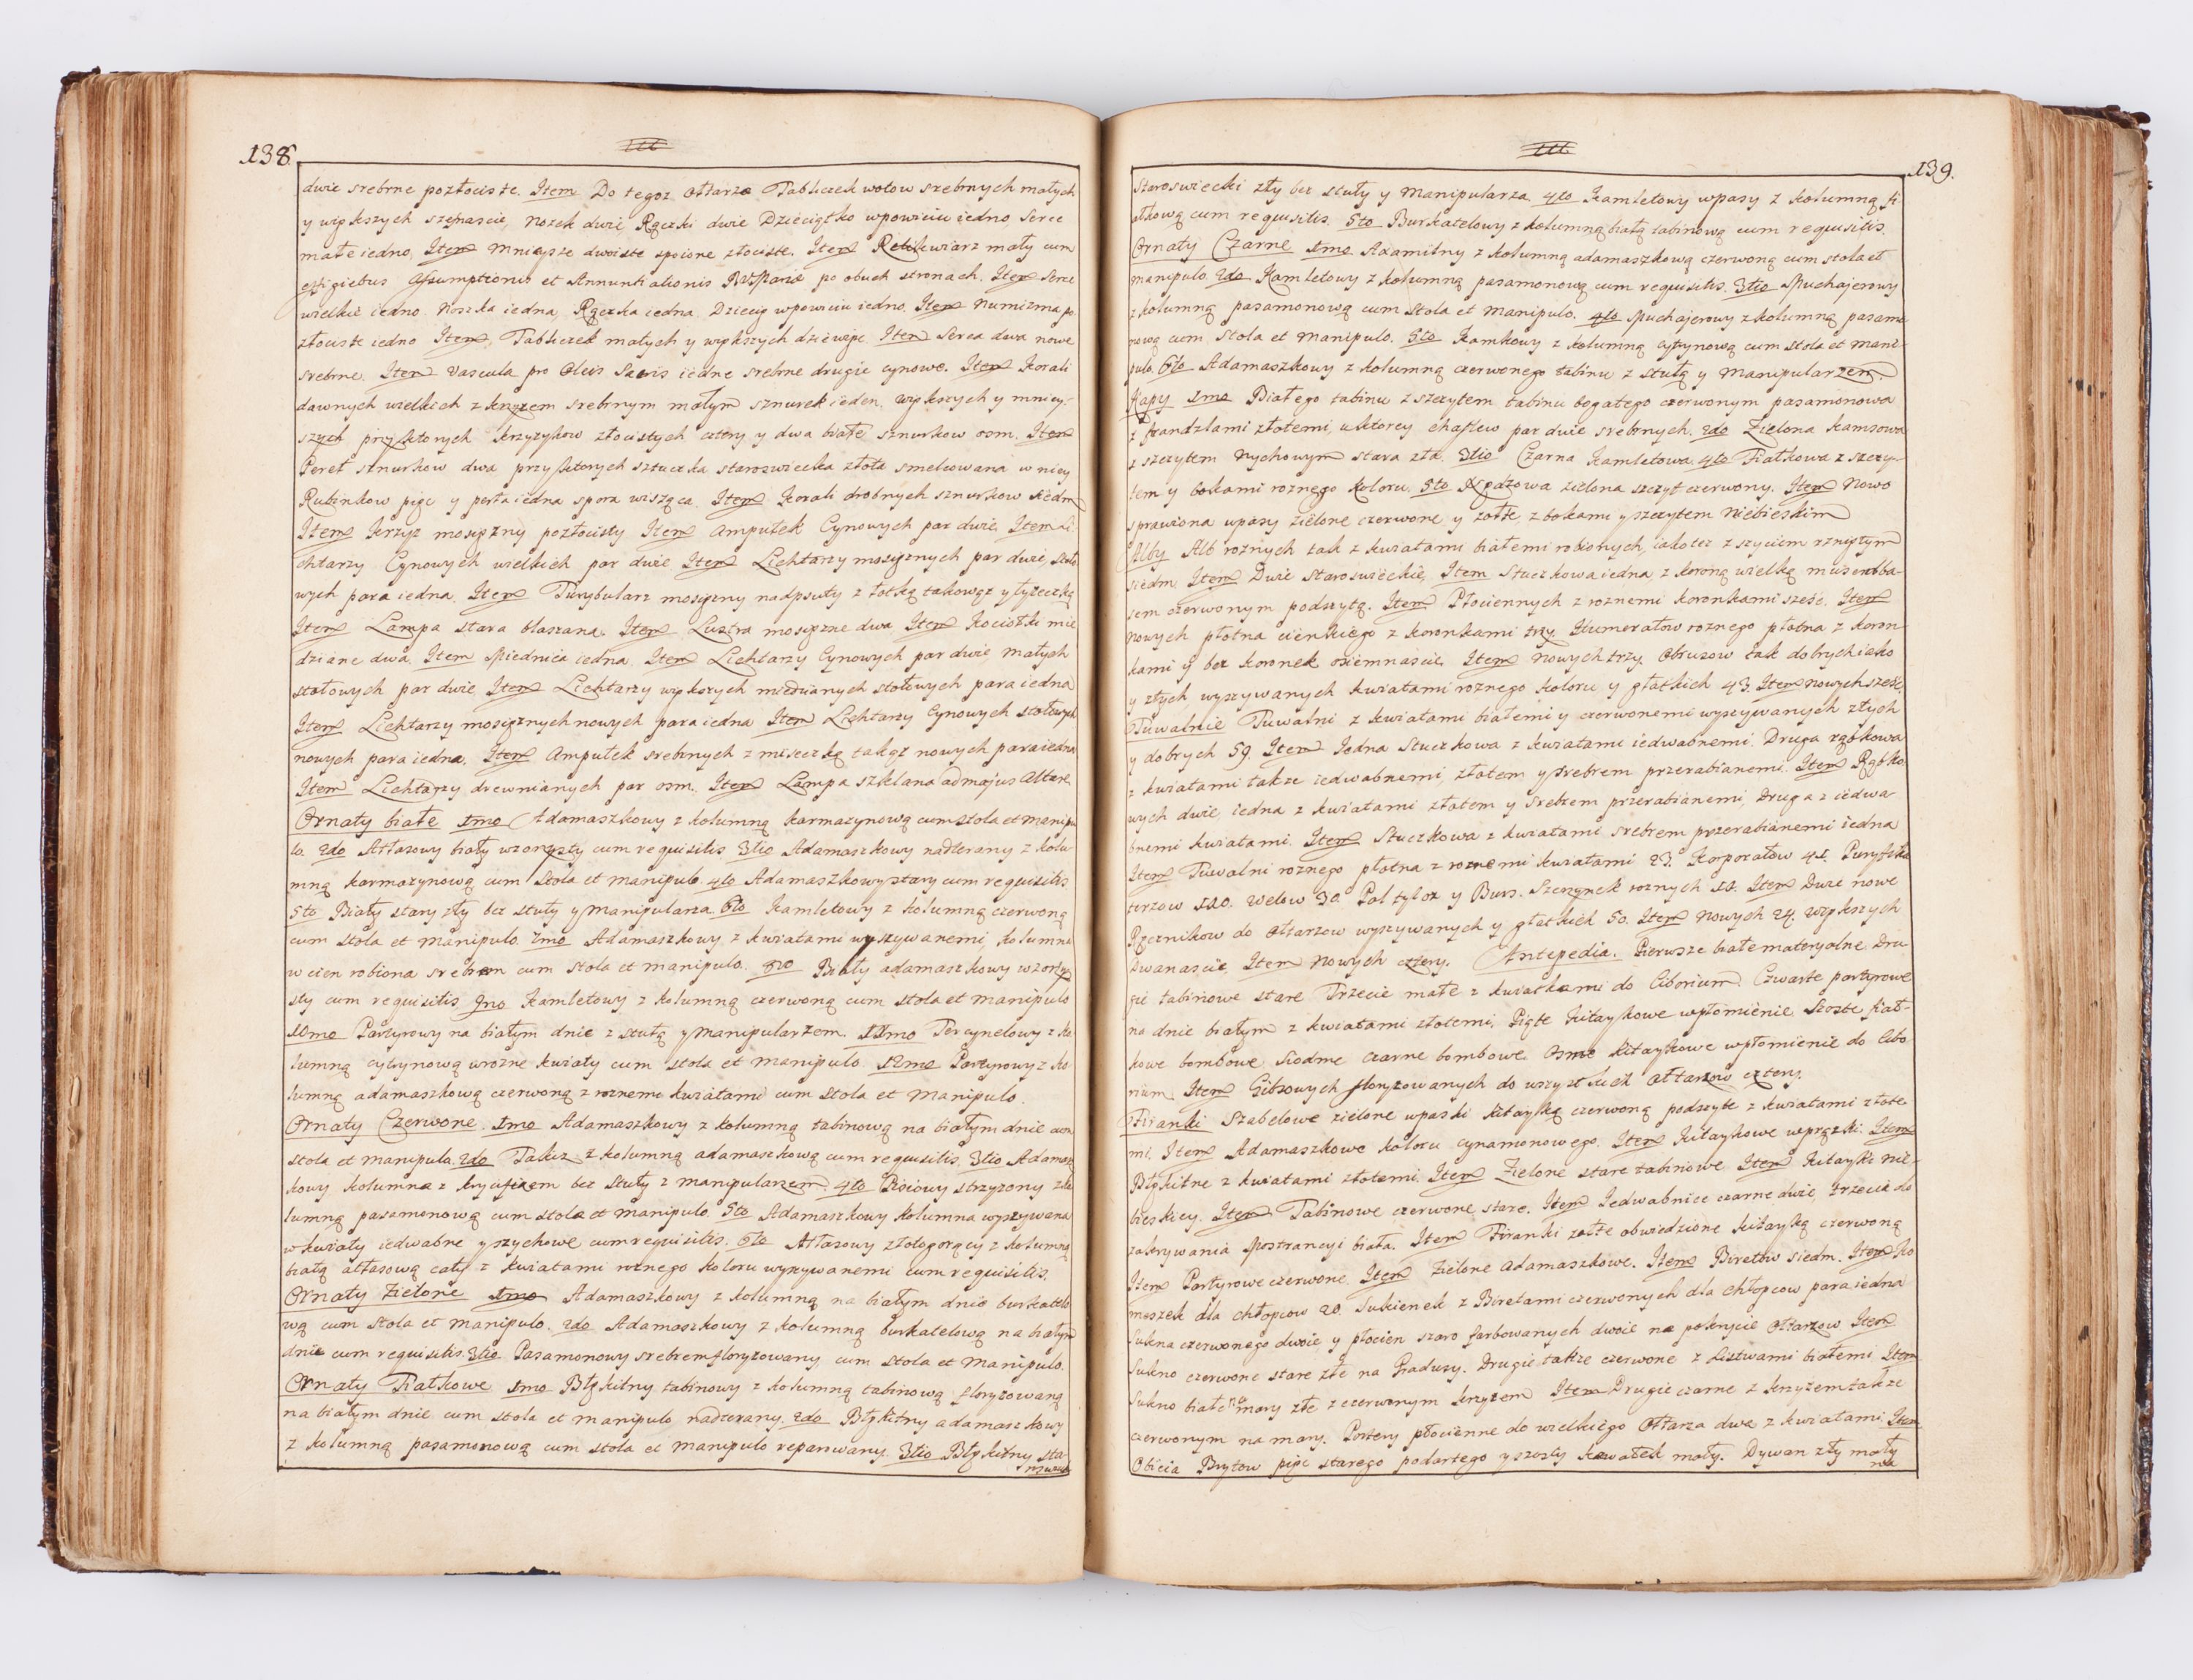 138.
dwie srebrne pozłociste. Item Do tegoz Ołtarza Tabliczek wotow srebrnych małych
y większych szesnascie, Nozek dwie Rączki dwie Dzieciątko wpowiciu iedno Serce
małe iedno, Item Mnieysze dwoiste spoione złociste. Item Relikwiarz mały cum
effigiebus Assumptionis et Annuntiationis BVMariæ po obuch stronach. Item Serce
wielkie iedno Noszka iedna, Rączka iedna, Dziecię wpowiciu iedno. Item Numizma po
złociste iedno Item, Tabliczek małych y większych dziewięc. Item Serca dwa nowe
srebrne. Item Vascula pro Oleis Sacris iedne srebrne drugie cynowe. Item Korali
dawnych wielkich z krzyzem srebrnym małym sznurek ieden, większych y mniey-
szych przyktorych krzyzykow złocistych cztery y dwa białe sznurkow osm. Item
Pereł sznurkow dwa przyktorych sztuczka staroswiecka złota smelcowana w niey
Rubinkow pięc y perła iedna spora wisząca. Item Korali drobnych sznurkow siedm
Item Krzyz mosięzny pozłocisty Item Ampułek Cynowych par dwie, Item Li-
chtarzy Cynowych wielkich par dwie Item Lichtarzy mosięznych par dwie, stoło
wych para iedna. Item Turybularz mosięzny nadpsuty z łotką takowąz y łyzeczką
Item Lampa stara blaszana. Item Lustra mosięzne dwa Item Kociołki mie
dziane dwa. Item Miednica iedna, Item Lichtarzy Cynowych par dwie małych
stołowych par dwie Item Lichtarzy większych miedzianych stołowych para iedna
Item Lichtarzy mosięznych nowych para iedna Item Lichtarzy Cynowych stołowych
nowych para iedna. Item Ampułek srebrnych z miseczką takąz nowych para iedna
Item Lichtarzy drewnianych par osm. Item Lampa szklana ad majus Altare.
Ornaty białe 1mo Adamaszkowy z kolumną karmazynową cum stola et manipu
lo. 2do Atłasowy biały wzorzysty cum requisitis 3tio Adamaszkowy nadterany z kolu-
mną karmazynową cum Stola et manipulo. 4to Adamaszkowy stary cum requisitis
5to Biały stary zły bez stuły y Manipularza. 6to Kamletowy z kolumną czerwoną
cum stola et manipulo. 7mo Adamaszkowy z kwiatami wyszywanemi, kolumna
w cien robiona srebrem cum stola et manipulo. 8vo Biały adamaszkowy wzorzy
sty cum requisitis 9no Kamletowy z kolumną czerwoną cum stola et manipulo
10mo Partyrowy na białym dnie z stułą y Manipularzem. 11mo Tercynelowy z ko
lumną cytrynową wrozne kwiaty cum stola et manipulo. 12mo Partyrowy z ko
lumną adamaszkową czerwoną z roznemi kwiatami cum Stola et Manipulo.
Ornaty Czerwone. 1mo Adamaszkowy z kolumną tabinową na białym dnie cum
stola et manipulo. 2do Takiz z kolumną adamaszkową cum requisitis. 3tio Adamasz
kowy kolumna z krucyfixem bez Stuły z manipularzem. 4to Pisiowy strzyzony z ko
lumną pasamonową cum stola et manipulo. 5to Adamaszkowy kolumna wyszywana
w kwiaty iedwabne y szychowe cum requisitis. 6to Atłasowy złotogorący z kolumną
białą atłasową cały z kwiatami roznego koloru wyszywanemi cum requisitis.
Ornaty Zielone 1mo Adamaszkowy z kolumną na białym dnie burkatelo
wą cum stola et manipulo. 2do Adamaszkowy z kolumną burkatelową na białym
dnie cum requisitis. 3tio Pasamonowy srebrem floryzowany cum stola et Manipulo.
Ornaty Fiałkowe 1mo Błękitny tabinowy z kolumną tabinową floryzowaną
na białym dnie cum stola et manipulo nadterany. 2do Błękitny adamaszkowy
z kolumną pasamonową cum stola et manipulo reparowany. 3tio Błękitny sta-
roswiecki
139.
Staroswiecki zły bez stuły y Manipularza. 4to Kamletowy wpasy z kolumną fi
ałkową cum requisitis. 5to Burkatelowy z kolumną białą tabinową cum requisitis.
Ornaty Czarne 1mo Axamitny z kolumną adamaszkową czerwoną cum stola et
manipulo. 2do Kamletowy z kolumną pasamonową cum requisitis. 3tio Muchajerowy
z kolumną pasamonową cum Stola et Manipulo. 4to Muchajerowy z kolumną pasamo
nową cum Stola et manipulo. 5to Kamkowy z kolumną cytrynową cum stola et mani-
pulo. 6to Adamaszkowy z kolumną czerwonego tabinu z stułą y Manipularzem.
Kapy 1ma Białego tabinu z szczytem tabinu bogatego czerwonym pasamonowa
z frandzlami złotemi, uktorey chaflow par dwie srebrnych. 2do Zielona kamzowa
z szczytem rychowym stara zła. 3tio Czarna Kamletowa. 4to Fiałkowa z szczy-
tem y bokami roznego koloru. 5to zielona szczyt czerwony. Item Nowo
sprawiona wpasy zielone czerwone y zołte, z bokami y szczytem Niebieskim
Alby Alb roznych tak z kwiatami białemi robionych, iakotez z szyciem rzniętym
siedm Item Dwie staroswieckie, Item Stuczkowa iedna z koroną wielką
czerwonym podszytą. Item Płociennych z roznemi koronkami szesć. Item
Nowych płotna cienkiego z koronkami trzy Humerałow roznego płotna z koron
kami y bez koronek osiemnascie. Item nowych trzy. Obrusow tak dobrych iako
y złych wyszywanych kwiatami roznego koloru y głatkich 43. Item nowych szesc
Tuwalnie Tuwalni z kwiatami białemi y czerwonemi wyszywanych złych
y dobrych 59. Item Iedna Stuczkowa z kwiatami iedwabnemi. Druga rąbkowa
z kwiatami takze iedwabnemi, złotem y srebrem przerabianemi. Item Rąbko
wych dwie, iedna z kwiatami złotem y srebrem przerabianemi, Druga z iedwa-
bnemi kwiatami. Item Stuczkowa z kwiatami srebrem przerabianemi iedna
Item Tuwalni roznego płotna z roznemi kwiatami 23. Korporałow 41. Puryfika
terzow 120. Welow 30. Pal tyloz y Burs. Szczynek roznych Item Dwie nowe
Ręcznikow do Ołtarzow wyszywanych y głatkich 50. Item Nowych 24. Większych
Dwanascie, Item Nowych cztery. Antepedia. Pierwsze białe materyalne, Dru
gie tabinowe stare Trzecie małe z kwiatkami do Ciborium. Czwarte partyrowe
na dnie białym z kwiatami złotemi, Piąte kitaykowe wpłomienie, Szoste fiał-
kowe bombowe Siodme czarne bombowe Osme kitaykowe wpłomienie do Cibo
rium Item Gibsowych floryzowanych do wszystkich Ołtarzow cztery.
Firanki Szabelowe zielone wpaski kitayką czerwoną podszyte z kwiatami złote
mi. Item Adamaszkowe koloru cynamonowego. Item Kitaykowe wprązki. Item
Błękitne z kwiatami złotemi. Item Zielone stare tabinowe Item Kitayki nie-
bieskiey. Item Tabinowe czerwone stare. Item Iedwabnice czarne dwie, trzecia do
zakrywania Mostrancyi biała. Item Firanki zołte obwiedzione kitayką czerwoną
Item Partyrowe czerwone, Item zielone adamaszkowe. Item Biretow siedm. Item ko
meszek dla chłopcow 20. Sukienek z Biretami czerwonych dla chłopcow para iedna
Sukna czerwonego dwoie y płocien szaro farbowanych dwoie na pokrycie Ołtarzow Item
Sukno czerwone stare złe na Gradusy. Drugie takze czerwone z Listwami białemi Item
Sukno białe na mary złe z czerwonym krzyzem Item Drugie czarne z krzyzem takze
czerwonym na mary. Portery płocienne do wielkiego Ołtarza dwa z kwiatami. Item
Obicia Brytow pięc starego podartego y szosty kawałek mały. Dywan zły mały
na